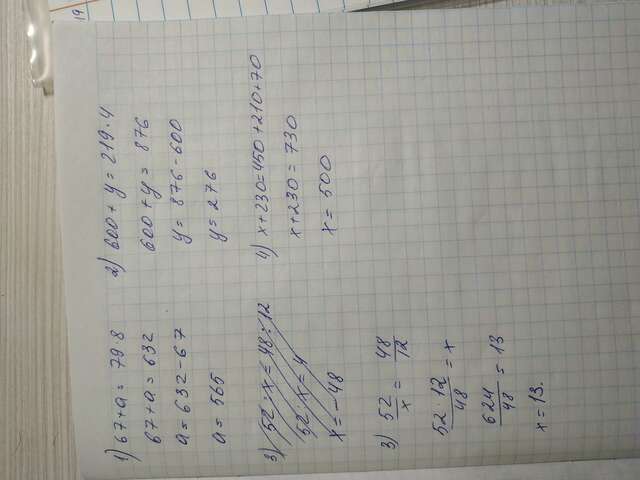 19
1) 67+a = 79·8
67+a = 632
a = 632-67
a = 565
2) 600+y = 219·4
600+y = 876
y = 876-600
y = 276
3) 52-x = 48:12
52-x = 4
x = -48
4) x+230=450+210+70
x+230 = 730
x = 500
3) 52/x = 48/12
52·12/48 = x
624/48 = 13
x = 13.